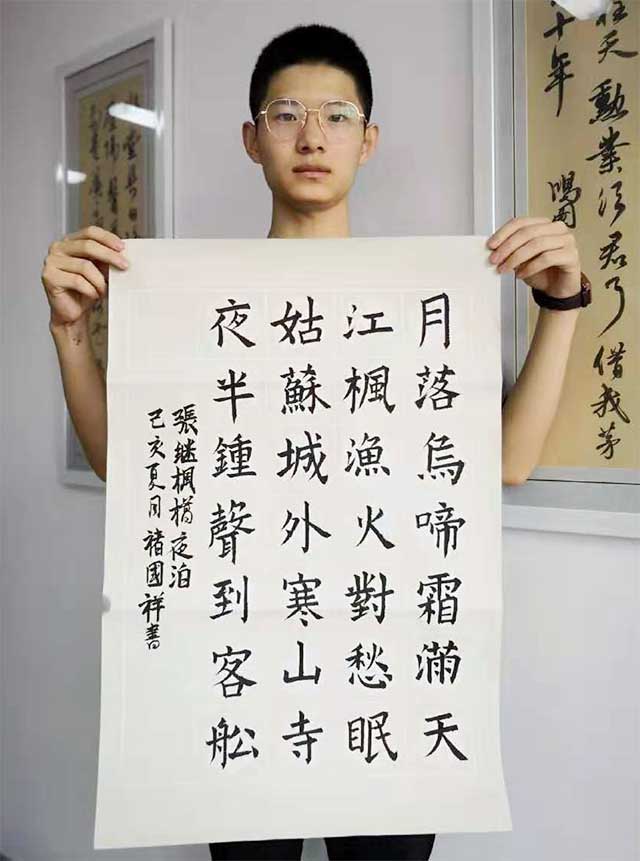 天勳業須君了借我茅
十年
月落烏啼霜滿天
江楓漁火對愁眠
姑蘇城外寒山寺
夜半鍾聲到客舩
張继楓橋夜泊
己亥夏月褚國祥書